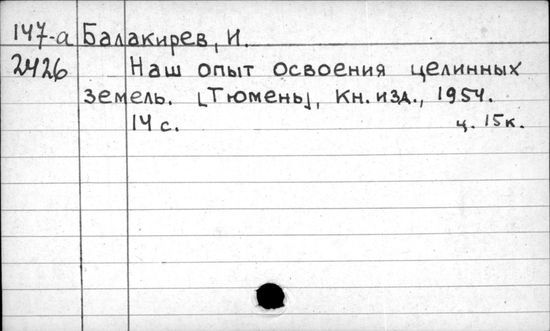 147-а Балакирев, И.
2426 Наш опыт освоения целинных
земель. [Тюмень], Кн. изд., 1954.
14 с. ц. 15 к.